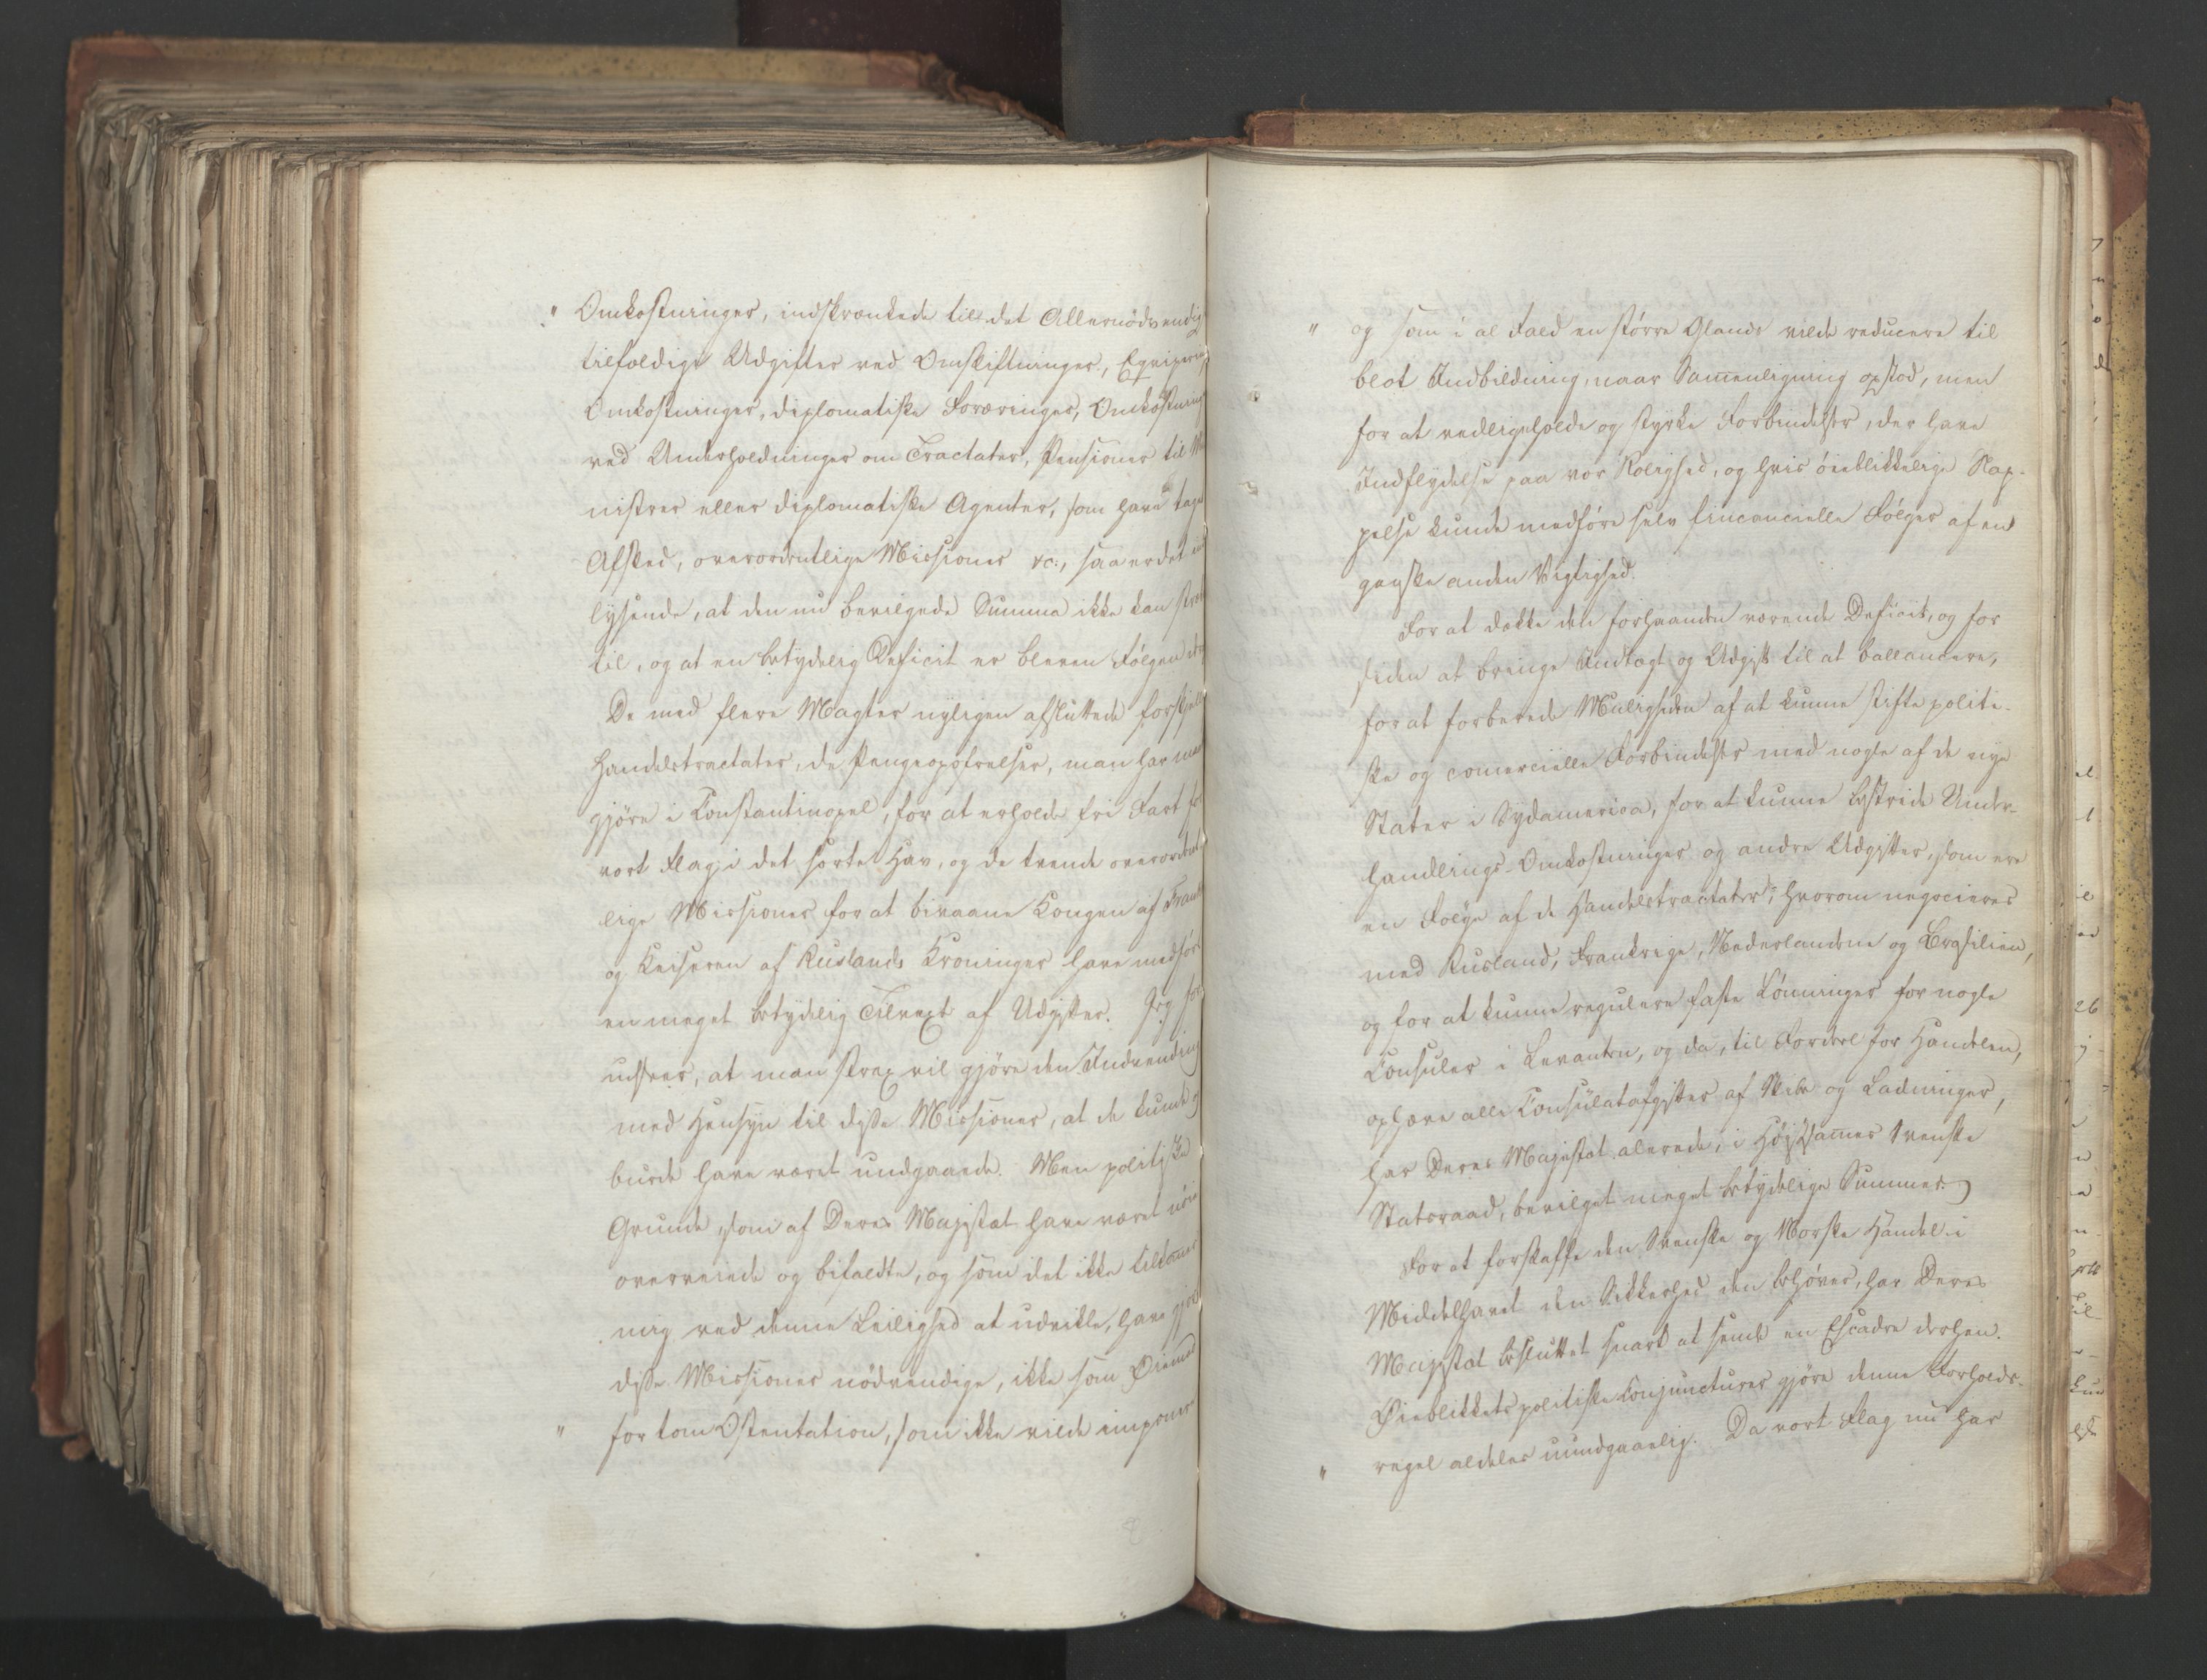 " Omkostninger, indskrænkede til det Allernödvendig
tilfældige Udgifter ved Omskiftninger, Equiperin
Omkostninger, diplomatiske Foræringer, Omkostning
ved Underholdninger om Tractater, Pensioner til Mi
nistrer eller diplomatiske Agenter, som have tage
Afsked, overordentlige Missioner &c., saa er det ind
lysende, at den nu bevilgede Summa ikke kan stræk
til, og at en betydelig Deficit er bleven Fölgen de
De med flere Magter nyligen afsluttede forskjel
Handelstractater, de Pengeopofrelser, man har maa
gjöre i Constantinopel, for at erholde fri Fart fo
vort Flag i det sorte Hav, og de trende overordent
lige Missioner for at bivaane Kongen af Frank
og Keiseren af Ruslands Kroninger have medför
en meget betydelig Tilvext af Udgifter. Jeg for
udseer, at man strax vil gjöre den Indvending
med Hensyn til disse Missioner, at de kunde o
burde have været undgaaede. Men politiske
Grunde, som af Deres Majestæt have været nöie
overveiede og bifaldte, og som det ikke tilkommer
mig ved denne Leilighed at udvikle, have gjor
disse Missioner nödvendige, ikke som Öiemed
" for tom Ostentation, som ikke vilde imponer
" og som i al Fald en större Glands vilde reducere til
blot Indbildning, naar Sammenligning opstod, men
for at vedligeholde og styrke Forbindelser, der have
Indflydelse paa vor Rolighed, og hvis öieblikkelige Slap-
pelse kunde medföre selv financielle Fölger af en
ganske anden Vigtighed.
For at dække den forhaanden værende Deficit, og for
siden at bringe Indtægt og Udgift til at ballancere,
for at forberede Muligheden af at kunne stifte politi-
ske og comercielle Forbindelser med nogle af de nye
Stater i Sydamerica, for at kunne bestride Under-
handlings-Omkostninger og andre Udgifter, som ere
en Fölge af de Handelstractater, hvorom negocieres
med Rusland, Frankrige, Nederlandene og Brasilien,
og for at kunne regulere faste Lönninger for nogle
Consuler i Levanten, og da, til Fordeel for Handelen,
ophæve alle Consulatafgifter af Skibe og Ladninger,
har Deres Majestæt alerede, i Höistsammes Svenske
Statsraad, bevilget meget betydelige Summer.
For at forskaffe den Svenske og Norske Handel i
Middelhavet den Sikkerhed den behöver, har Deres
Majestæt besluttet snart at sende en Escadre derhen.
Öieblikkets politiske Conjuncturer gjöre denne Forholds-
" regel aldeles uundgaaelig. Da vort Flag nu har